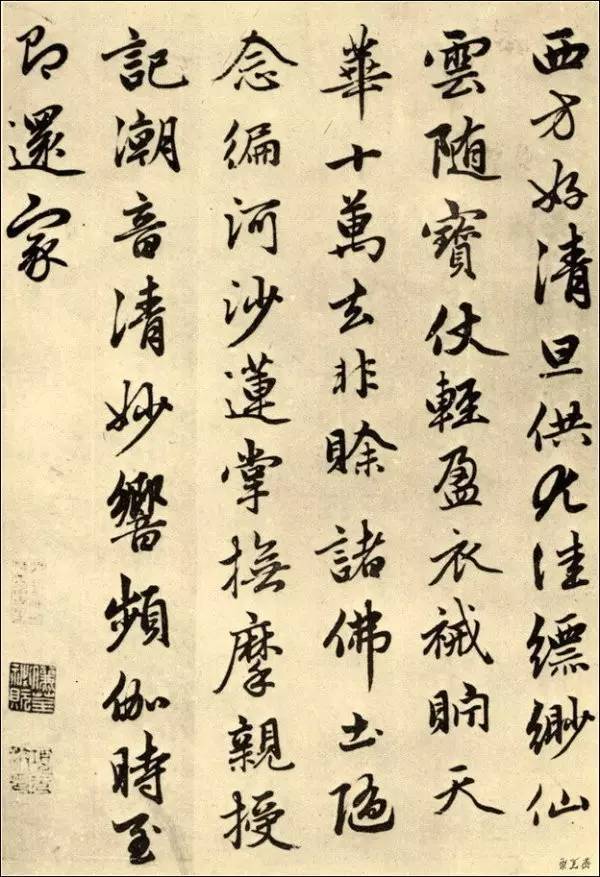 西方好清旦供尤佳縹緲仙
雲随寶仗輕盈衣祴貯天
華十萬去非賒諸佛土隨
念徧河沙蓮掌撫摩親授
記潮音清妙響頻伽時至
即還家